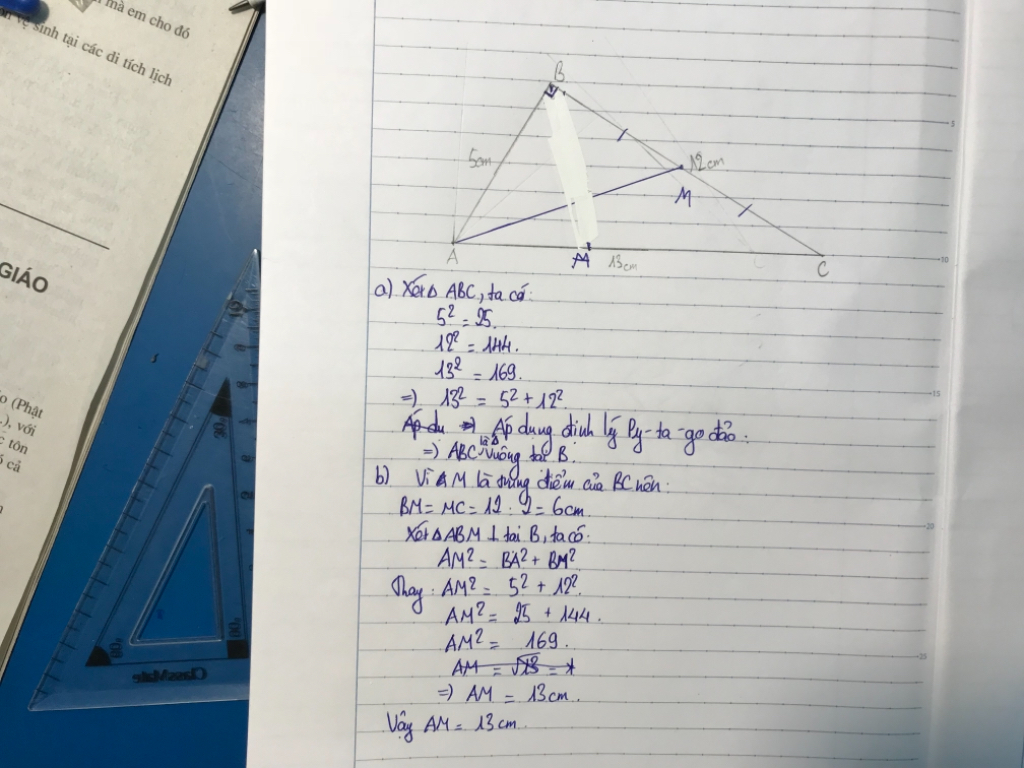 mà em cho đó
vệ sinh tại các di tích lịch
GIÁO
o (Phật
.), với
c tôn
ố cả
ClassMate
30°
60°
90°
B
5cm
12cm
M
A
M
13cm
C
5
10
15
20
25
a) Xét Δ ABC, ta có:
5² = 25.
12² = 144.
13² = 169.
=> 13² = 5² + 12².
Áp dụ => Áp dụng định lý Py-ta-go đảo:
=> ABC là Δ vuông tại B.
b) Vì M là trung điểm của BC nên:
BM = MC = 12 : 2 = 6cm.
Xét Δ ABM ⊥ tại B, ta có:
AM² = BA² + BM²
Thay: AM² = 5² + 12².
AM² = 25 + 144.
AM² = 169.
AM = √13 = 1
=> AM = 13cm.
Vậy AM = 13cm.